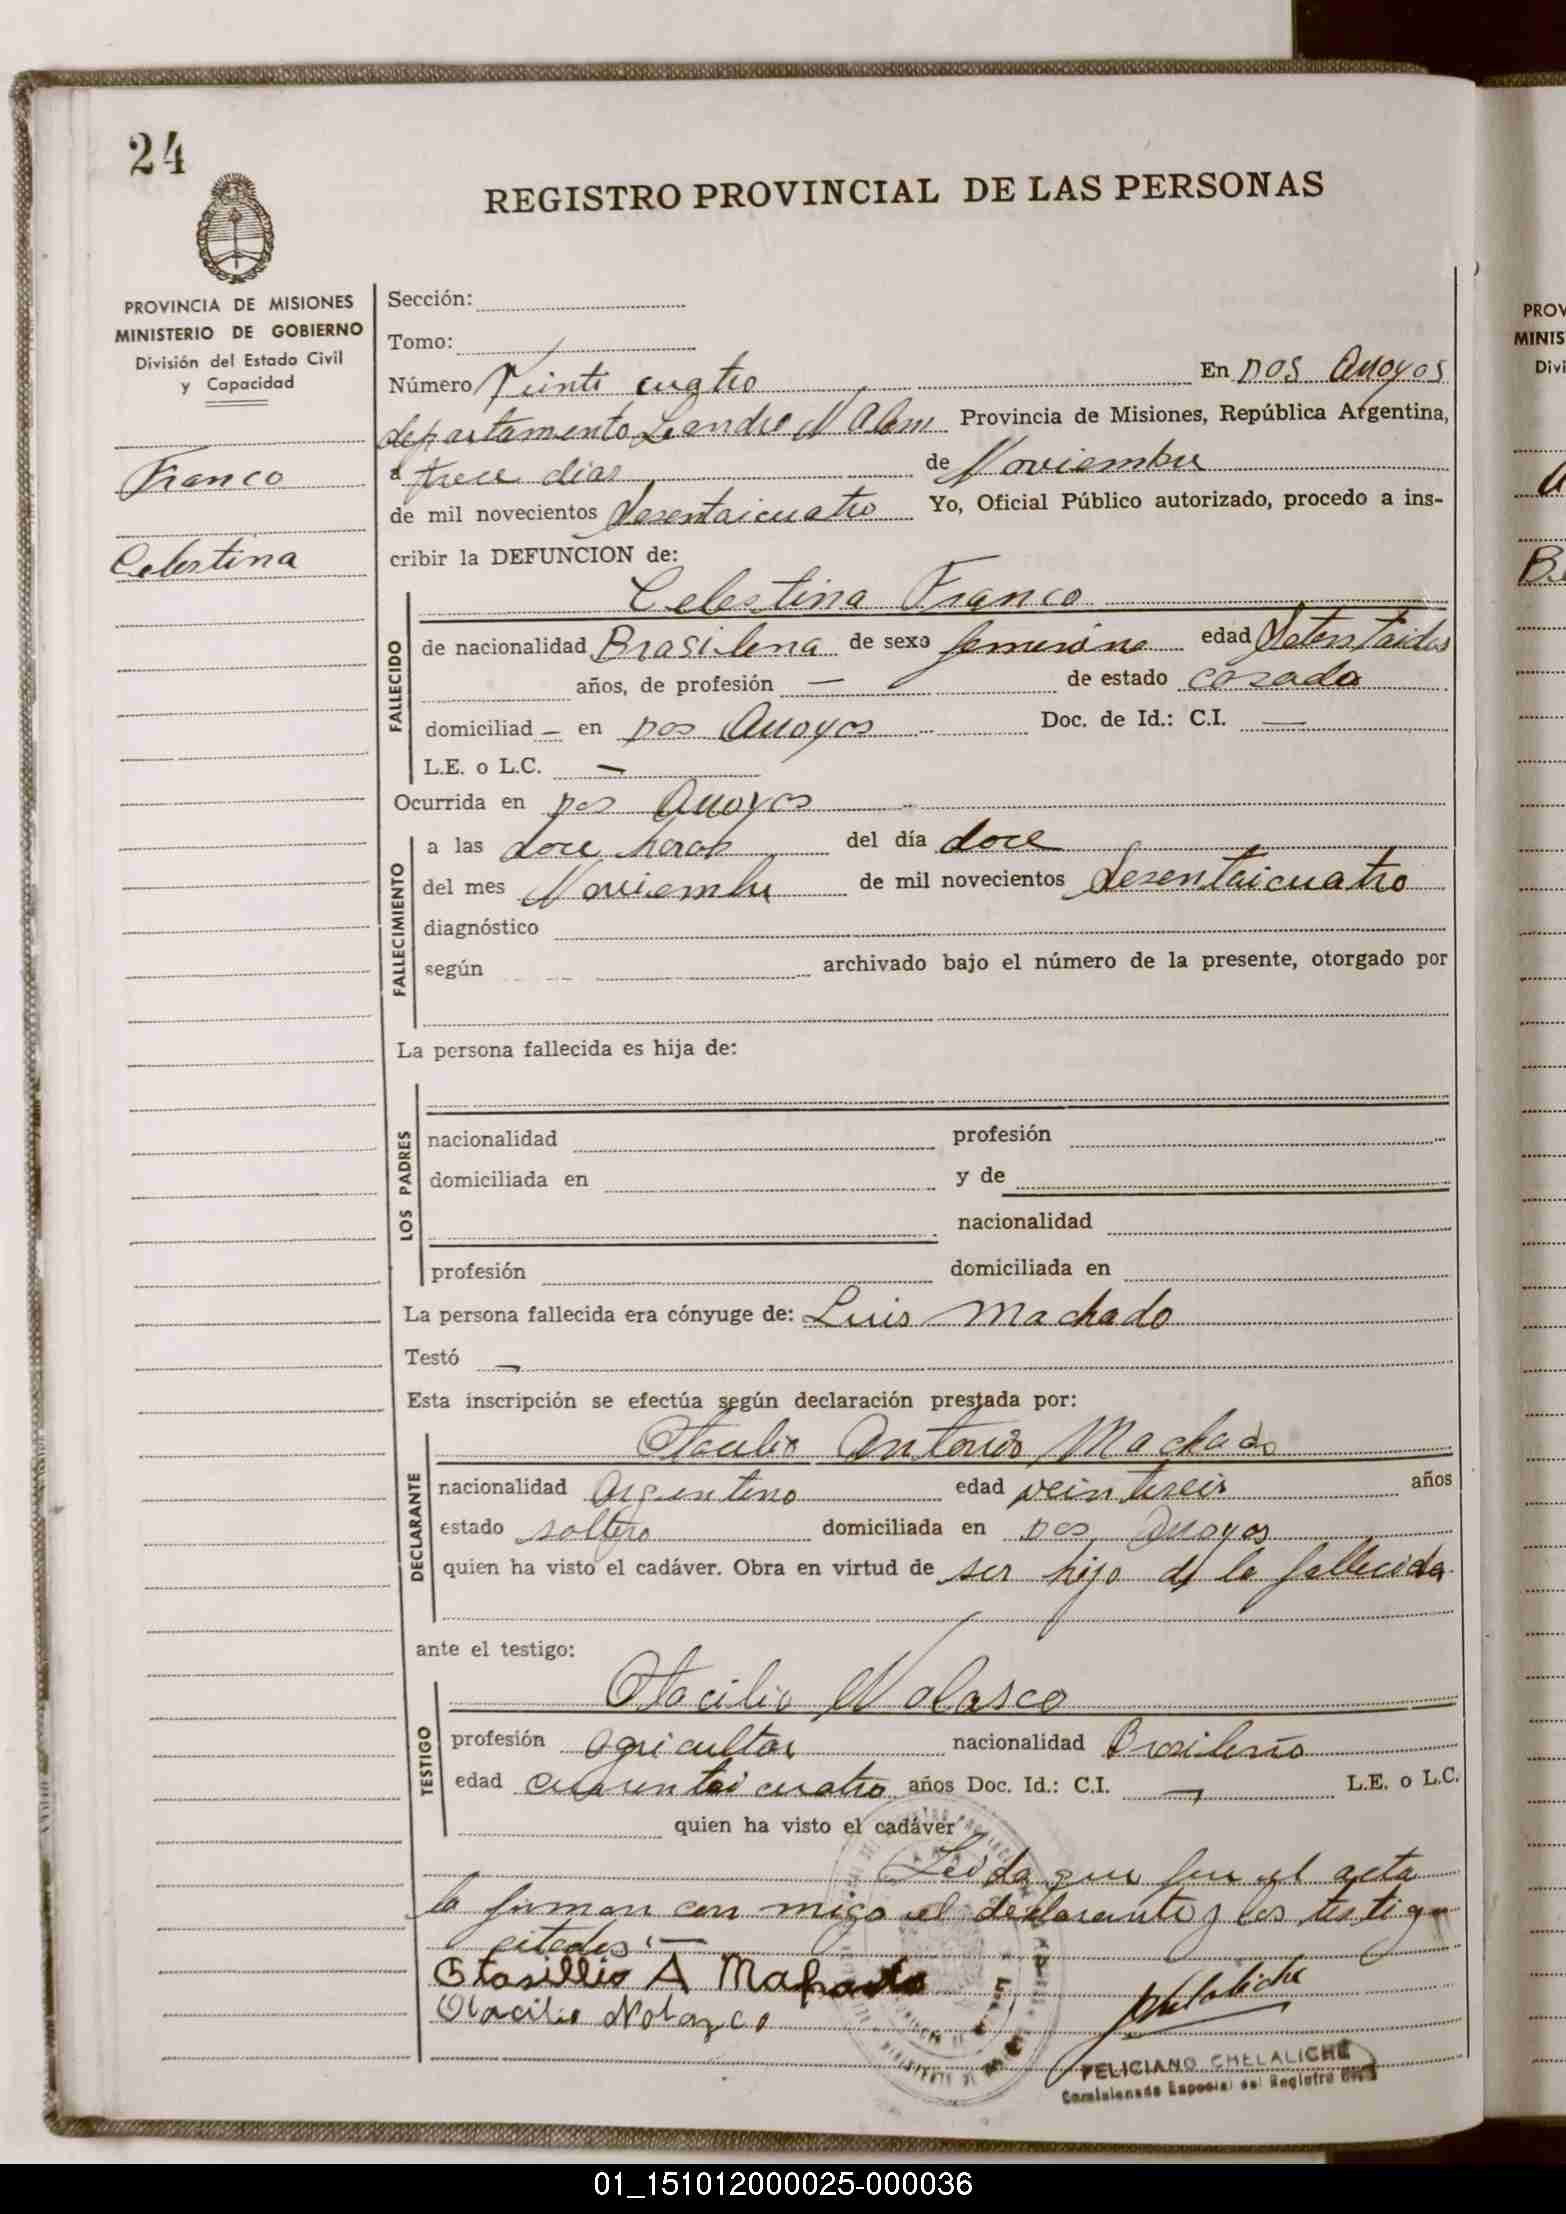 24
REGISTRO PROVINCIAL DE LAS PERSONAS
PROVINCIA DE MISIONES
MINISTERIO DE GOBIERNO
División del Estado Civil
y Capacidad
Franco
Celestina
Sección:
Tomo:
Número Veinti cuatro En Dos Arroyos
departamento Leandro N Alem Provincia de Misiones, República Argentina,
a trece dias de Noviembre
de mil novecientos Sesentaicuatro Yo, Oficial Público autorizado, procedo a ins-
cribir la DEFUNCION de:
Celestina Franco
FALLECIDO
de nacionalidad Brasilena de sexo femenino edad Setentaidos
años, de profesión — de estado casada
domiciliad — en Dos Arroyos Doc. de Id.: C.I. —
L.E. o L.C. —
Ocurrida en Dos Arroyos
FALLECIMIENTO
a las doce horas del día doce
del mes Noviembre de mil novecientos Sesentaicuatro
diagnóstico
según archivado bajo el número de la presente, otorgado por
La persona fallecida es hija de:
LOS PADRES
nacionalidad profesión
domiciliada en y de
nacionalidad
profesión domiciliada en
La persona fallecida era cónyuge de: Luis Machado
Testó —
Esta inscripción se efectúa según declaración prestada por:
Otacilio Antonio Machado
DECLARANTE
nacionalidad Argentino edad veintiseis años
estado soltero domiciliada en Dos Arroyos
quien ha visto el cadáver. Obra en virtud de ser hijo de la fallecida
ante el testigo:
Otacilio Nolasco
TESTIGO
profesión agricultor nacionalidad Brasileño
edad cuarentai cuatro años Doc. Id.: C.I. — L.E. o L.C.
quien ha visto el cadáver
Leida que fue el acta
la firman con migo el declarante y los testigo
citados.—
Otasillio A Machado
Otacilio Nolazco
FELICIANO CHELALICHE
Comisionado Especial del Registro Civil
PROV
MINIS
Divi
01_151012000025-000036